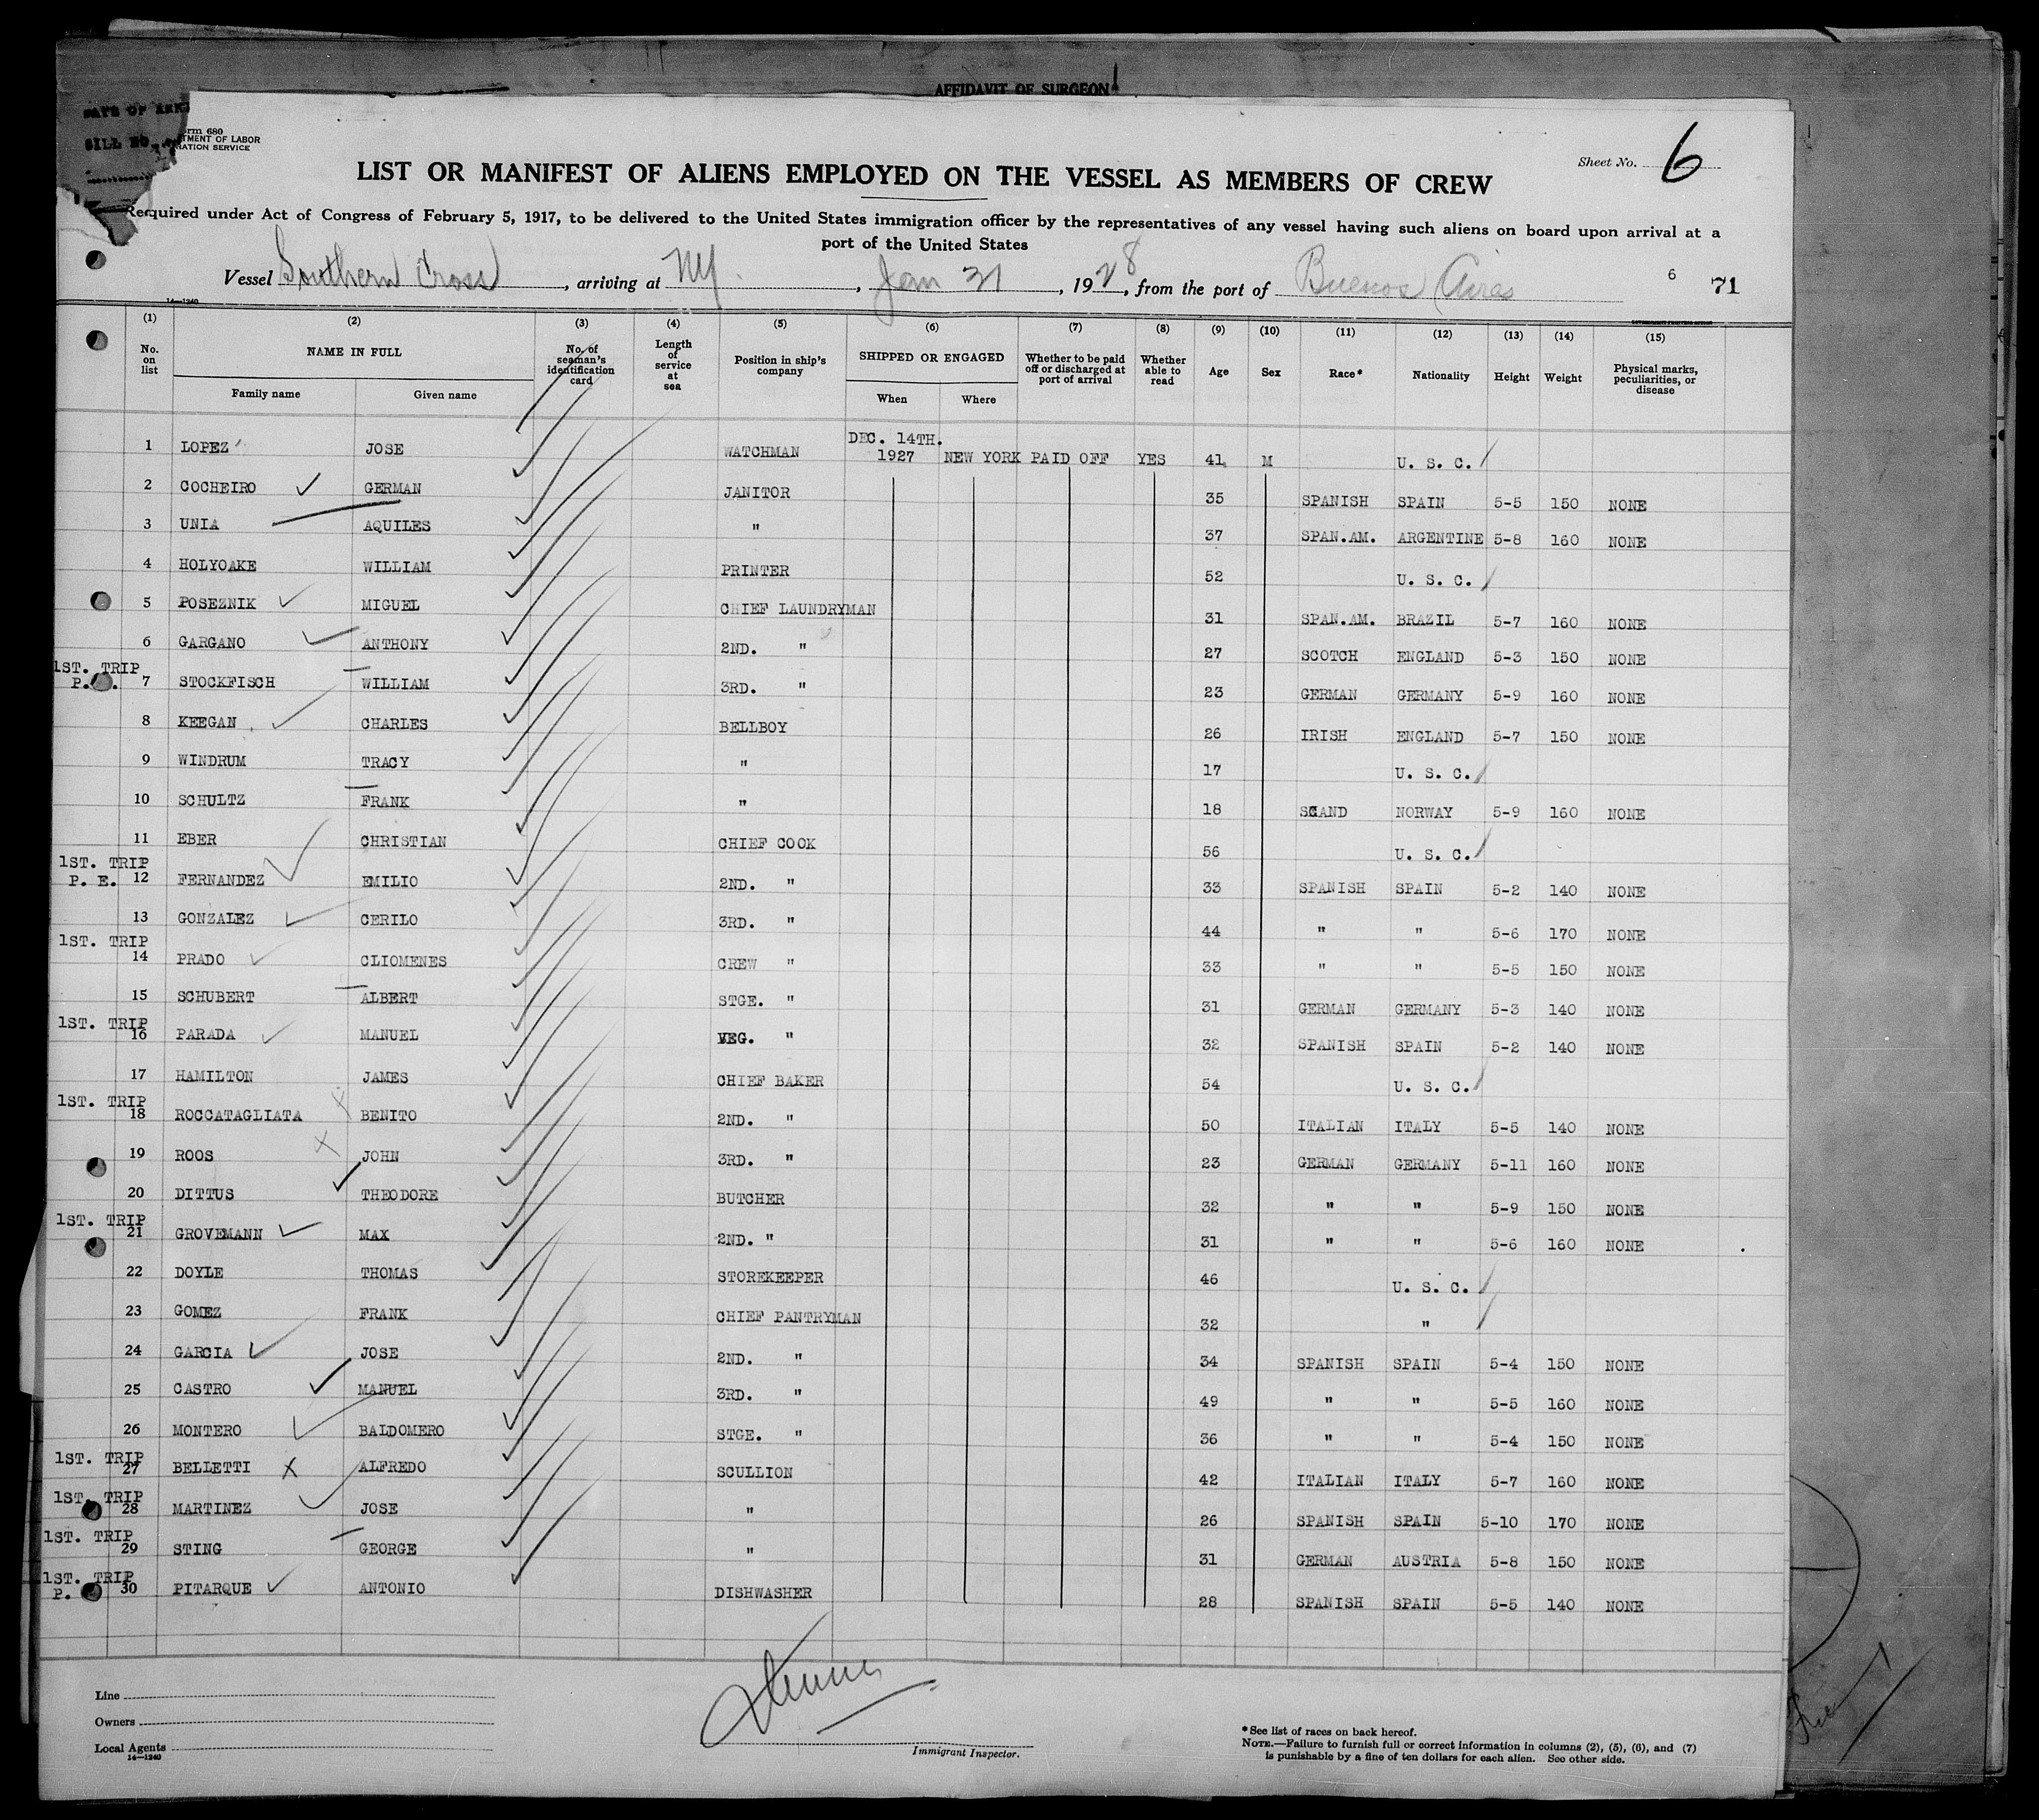 AFFIDAVIT OF SURGEON
DATE OF
BILL NO.
Form 680
TMENT OF LABOR
RATION SERVICE
Sheet No. 6
LIST OR MANIFEST OF ALIENS EMPLOYED ON THE VESSEL AS MEMBERS OF CREW
Required under Act of Congress of February 5, 1917, to be delivered to the United States immigration officer by the representatives of any vessel having such aliens on board upon arrival at a
port of the United States
Vessel Southern Cross, arriving at NY, Jan 31, 1928, from the port of Buenos Aires 6 71
14—1240
(1) (2) (3) (4) (5) (6) (7) (8) (9) (10) (11) (12) (13) (14) (15)
No. on list NAME IN FULL No. of seaman's identification card Length of service at sea Position in ship's company SHIPPED OR ENGAGED Whether to be paid off or discharged at port of arrival Whether able to read Age Sex Race* Nationality Height Weight Physical marks, peculiarities, or disease
Family name Given name When Where
1 LOPEZ JOSE WATCHMAN DEC. 14TH. 1927 NEW YORK PAID OFF YES 41 M U. S. C.
2 COCHEIRO GERMAN JANITOR 35 SPANISH SPAIN 5-5 150 NONE
3 UNIA AQUILES " 37 SPAN.AM. ARGENTINE 5-8 160 NONE
4 HOLYOAKE WILLIAM PRINTER 52 U. S. C.
5 POSEZNIK MIGUEL CHIEF LAUNDRYMAN 31 SPAN.AM. BRAZIL 5-7 160 NONE
6 GARGANO ANTHONY 2ND. " 27 SCOTCH ENGLAND 5-3 150 NONE
1ST. TRIP
P. 7 STOCKFISCH WILLIAM 3RD. " 23 GERMAN GERMANY 5-9 160 NONE
8 KEEGAN CHARLES BELLBOY 26 IRISH ENGLAND 5-7 150 NONE
9 WINDRUM TRACY " 17 U. S. C.
10 SCHULTZ FRANK " 18 SCAND NORWAY 5-9 160 NONE
11 EBER CHRISTIAN CHIEF COOK 56 U. S. C.
1ST. TRIP
P. E. 12 FERNANDEZ EMILIO 2ND. " 33 SPANISH SPAIN 5-2 140 NONE
13 GONZALEZ CERILO 3RD. " 44 " " 5-6 170 NONE
1ST. TRIP
14 PRADO CLIOMENES CREW " 33 " " 5-5 150 NONE
15 SCHUBERT ALBERT STGE. " 31 GERMAN GERMANY 5-3 140 NONE
1ST. TRIP
16 PARADA MANUEL VEG. " 32 SPANISH SPAIN 5-2 140 NONE
17 HAMILTON JAMES CHIEF BAKER 54 U. S. C.
1ST. TRIP
18 ROCCATAGLIATA BENITO 2ND. " 50 ITALIAN ITALY 5-5 140 NONE
19 ROOS JOHN 3RD. " 23 GERMAN GERMANY 5-11 160 NONE
20 DITTUS THEODORE BUTCHER 32 " " 5-9 150 NONE
1ST. TRIP
21 GROVEMANN MAX 2ND. " 31 " " 5-6 160 NONE
22 DOYLE THOMAS STOREKEEPER 46 U. S. C.
23 GOMEZ FRANK CHIEF PANTRYMAN 32 "
24 GARCIA JOSE 2ND. " 34 SPANISH SPAIN 5-4 150 NONE
25 CASTRO MANUEL 3RD. " 49 " " 5-5 160 NONE
26 MONTERO BALDOMERO STGE. " 36 " " 5-4 150 NONE
1ST. TRIP
27 BELLETTI ALFREDO SCULLION 42 ITALIAN ITALY 5-7 160 NONE
1ST. TRIP
28 MARTINEZ JOSE " 26 SPANISH SPAIN 5-10 170 NONE
1ST. TRIP
29 STING GEORGE " 31 GERMAN AUSTRIA 5-8 150 NONE
1ST. TRIP
P. 30 PITARQUE ANTONIO DISHWASHER 28 SPANISH SPAIN 5-5 140 NONE
Line
Owners
Local Agents
14—1240
Immigrant Inspector.
*See list of races on back hereof.
NOTE.—Failure to furnish full or correct information in columns (2), (5), (6), and (7)
is punishable by a fine of ten dollars for each alien. See other side.